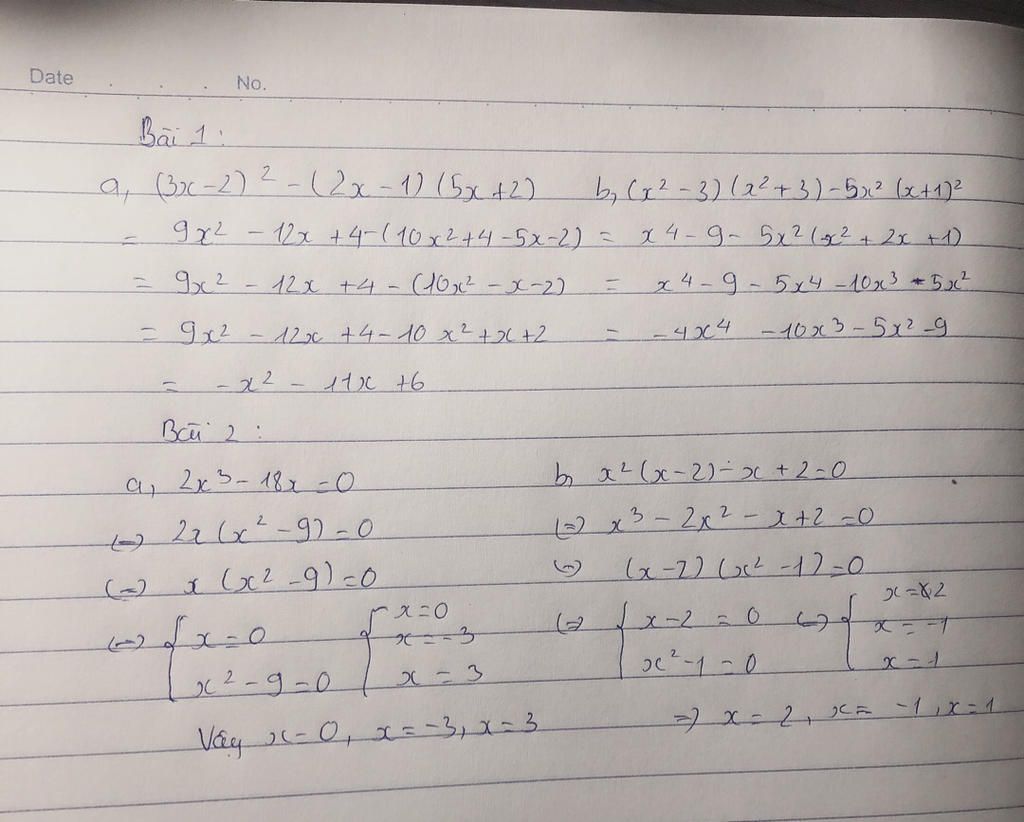 Date . . . No.
Bài 1:
a, (3x-2)² - (2x-1)(5x+2)
= 9x² - 12x + 4-(10x²+4-5x-2)
= 9x² - 12x + 4 - (10x² - x - 2)
= 9x² - 12x + 4 - 10x² + x + 2
= -x² - 11x + 6
b, (x² - 3)(x² + 3) - 5x² (x+1)²
= x4 - 9 - 5x²(x² + 2x + 1)
= x4 - 9 - 5x4 - 10x³ - 5x²
= -4x⁴ - 10x³ - 5x² - 9
Bài 2:
a, 2x³ - 18x = 0
(=) 2x(x² - 9) = 0
(=) x(x² - 9) = 0
(=) { x = 0 { x = 0
x = -3
x² - 9 = 0 x = 3
Vậy x = 0, x = -3, x = 3
b, x²(x-2) - x + 2 = 0
(=) x³ - 2x² - x + 2 = 0
(=) (x-2)(x² - 1) = 0
(=) { x - 2 = 0 (=) { x = 2
x = -1
x² - 1 = 0 x = 1
=) x = 2, x = -1, x = 1